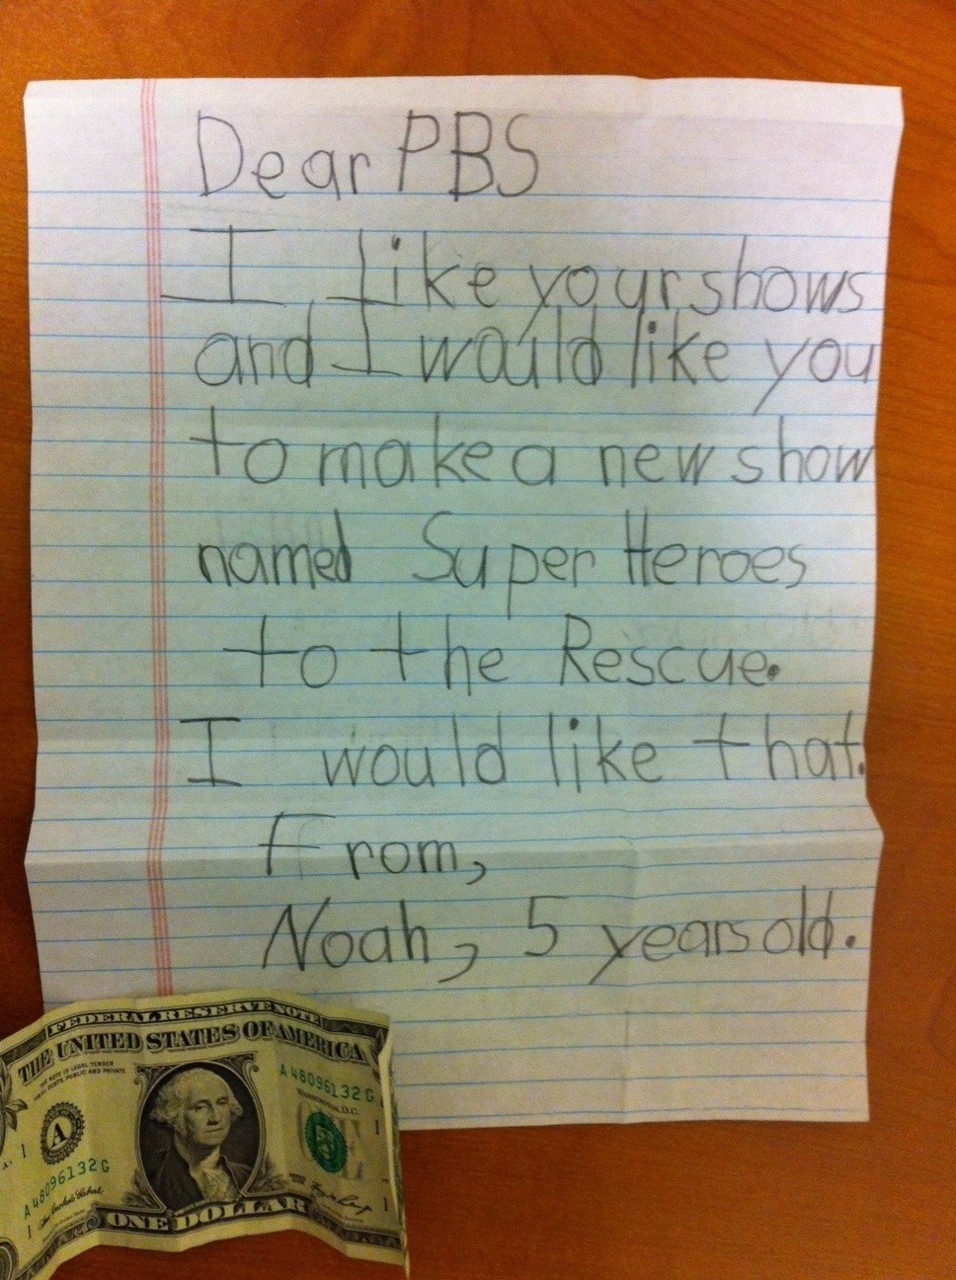 Dear PBS
I like your shows
and I would like you
to make a new show
named Super Heroes
to the Rescue.
I would like that.
From,
Noah, 5 years old.
FEDERAL RESERVE NOTE
THE UNITED STATES OF AMERICA
THIS NOTE IS LEGAL TENDER
FOR ALL DEBTS, PUBLIC AND PRIVATE
A 48096132 G
WASHINGTON, D.C.
A
1
1
A 48096132 G
1
1
ONE DOLLAR